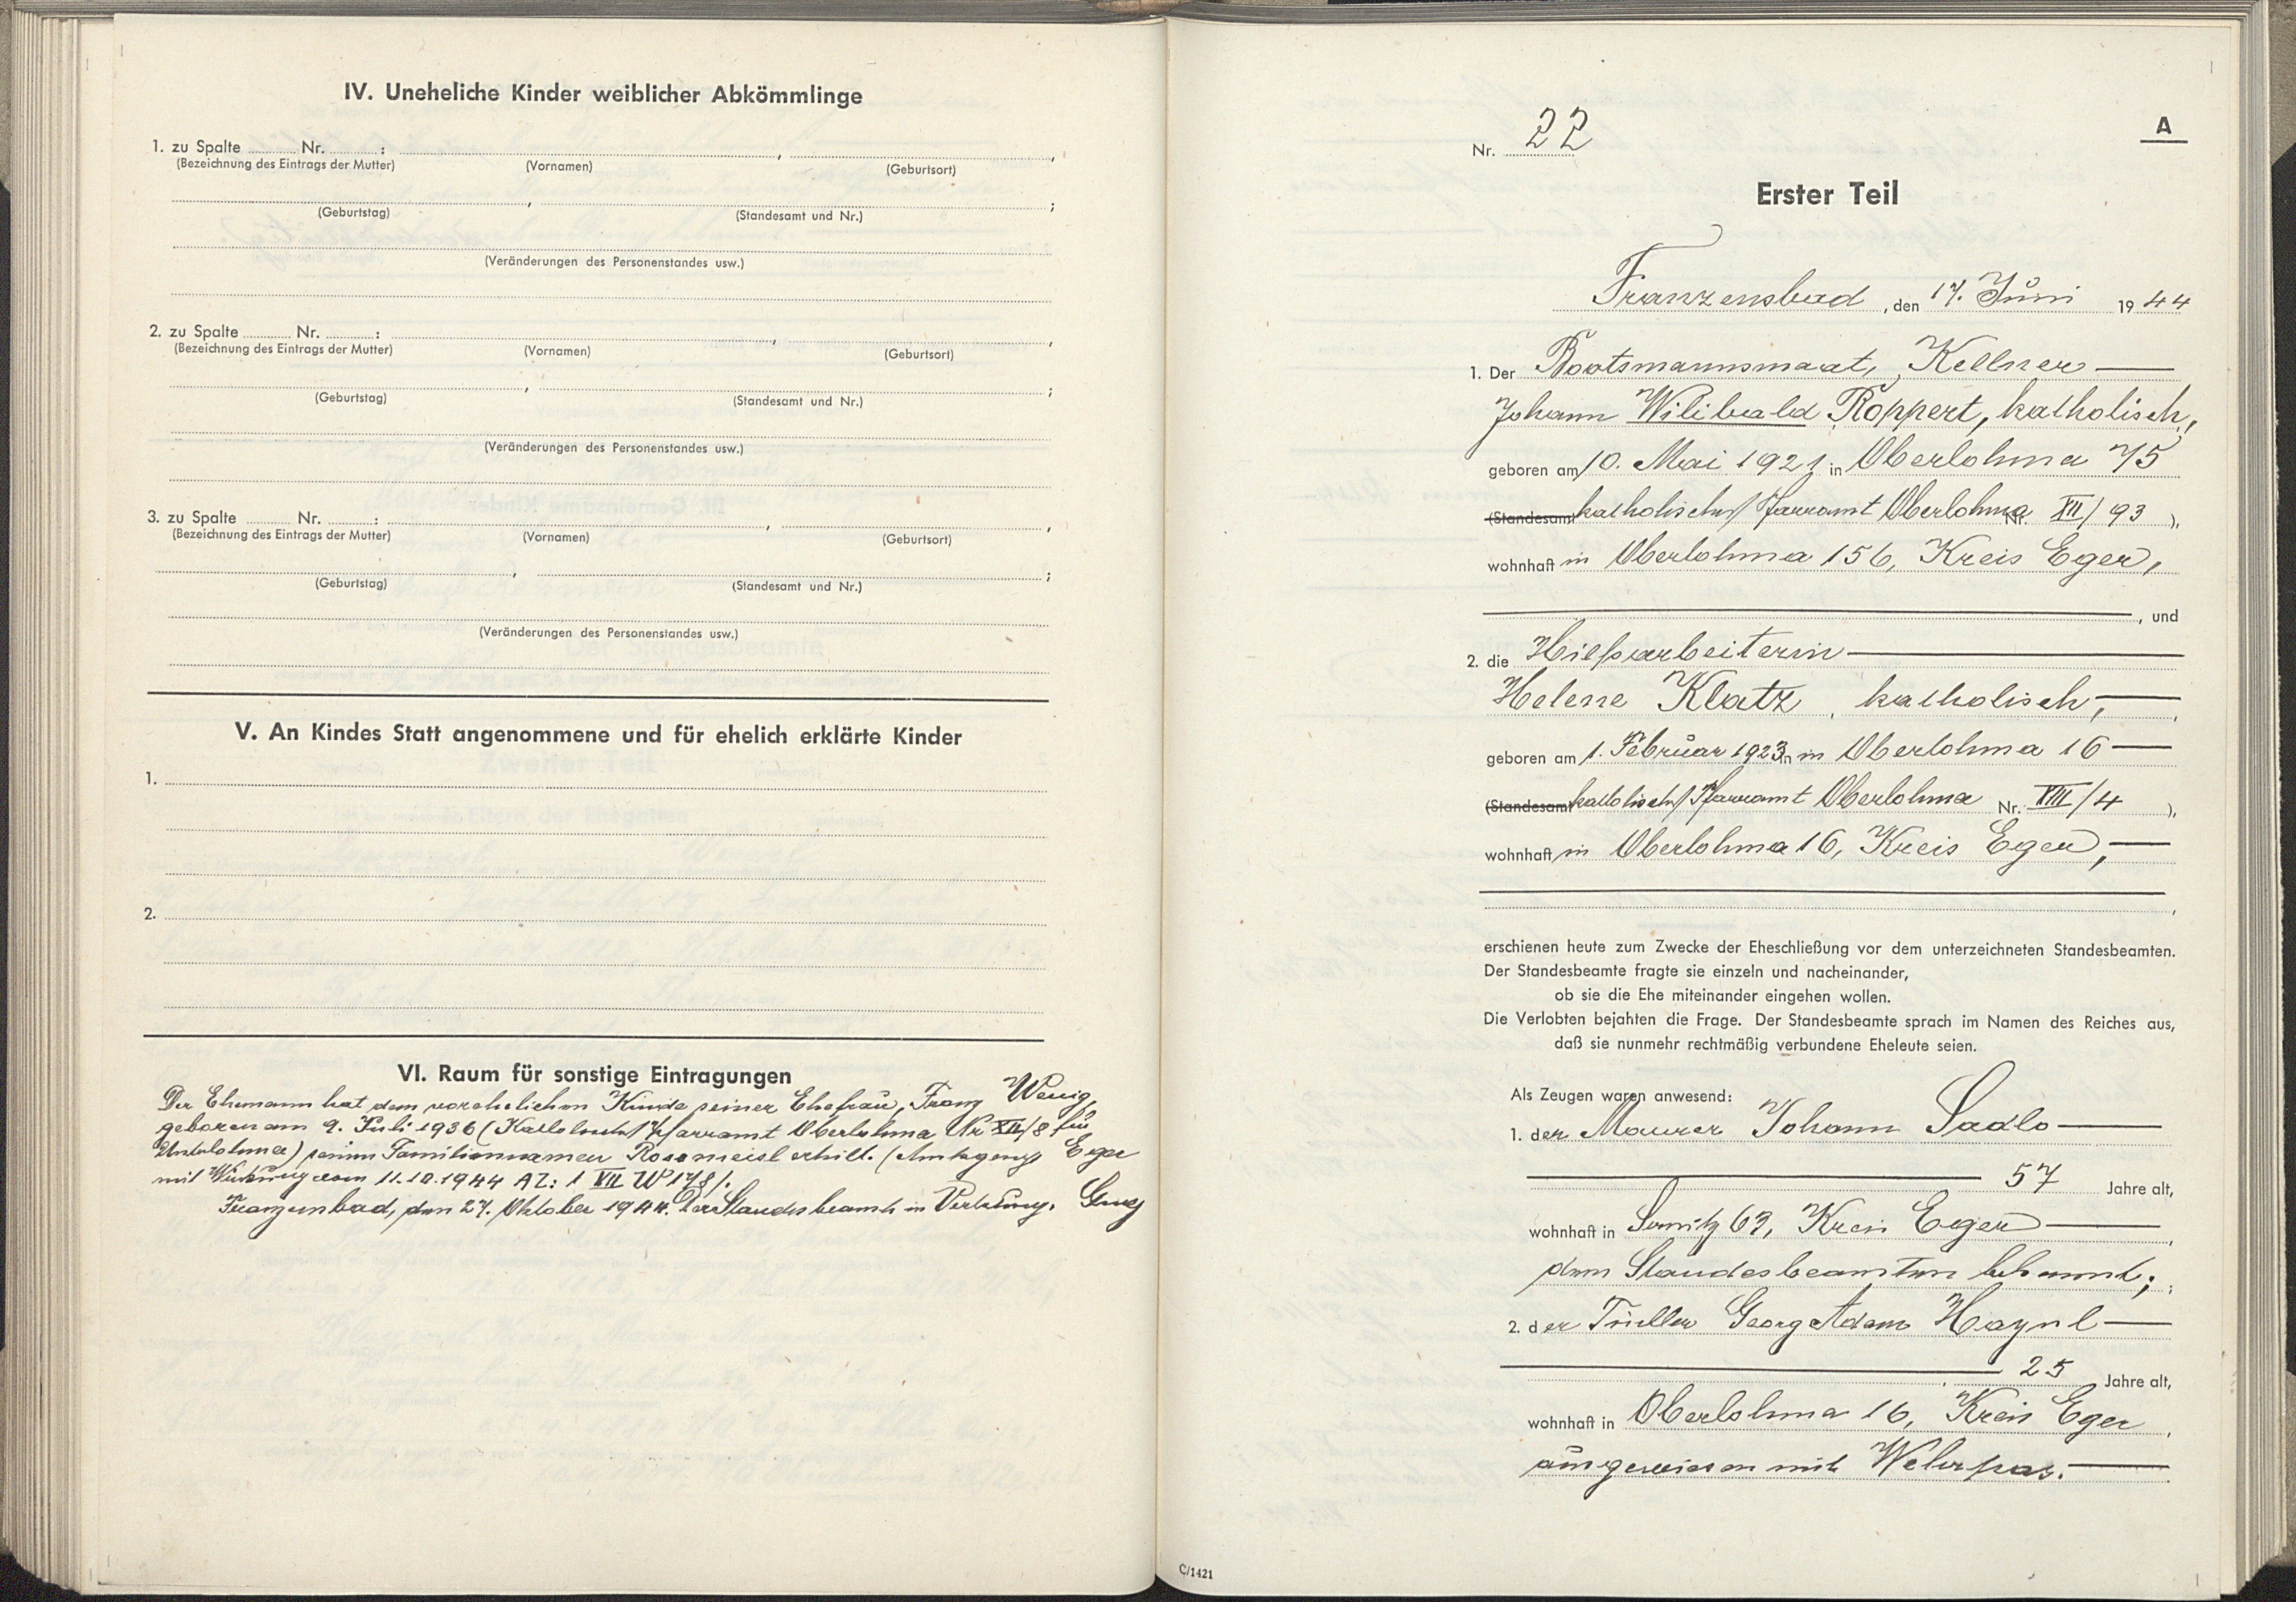 IV. Uneheliche Kinder weiblicher Abkömmlinge
1. zu Spalte Nr. : , ,
(Bezeichnung des Eintrags der Mutter) (Vornamen) (Geburtsort)
, ;
(Geburtstag) (Standesamt und Nr.)
(Veränderungen des Personenstandes usw.)
2. zu Spalte Nr. : , ,
(Bezeichnung des Eintrags der Mutter) (Vornamen) (Geburtsort)
, ;
(Geburtstag) (Standesamt und Nr.)
(Veränderungen des Personenstandes usw.)
3. zu Spalte Nr. : , ,
(Bezeichnung des Eintrags der Mutter) (Vornamen) (Geburtsort)
, ;
(Geburtstag) (Standesamt und Nr.)
(Veränderungen des Personenstandes usw.)
V. An Kindes Statt angenommene und für ehelich erklärte Kinder
1.
2.
VI. Raum für sonstige Eintragungen
Der Ehemann hat dem vorehelichen Kinde seiner Ehefrau, Franz Wenig,
geboren am 9. Juli 1936 (Katholisches Pfarramt Oberlohma Nr XII/8 für
Unterlohma) seinen Familiennamen Rosomeisl erteilt. (Amtsger. Eger
mit Wirkung vom 11.10.1944 AZ: 1 VII W 178).
Franzensbad, den 27. Oktober 1944. Der Standesbeamte in Vertretung.
Nr. 22
A
Erster Teil
Franzensbad, den 17. Juni 1944
1. Der Bootsmannsmaat, Kellner
Johann Wilibald Roppert, katholisch,
geboren am 10. Mai 1921 in Oberlohma 75
(Standesamt katholisches Pfarramt Oberlohma Nr. XII/93 ),
wohnhaft in Oberlohma 156, Kreis Eger,
, und
2. die Hilfsarbeiterin
Helene Klatz, katholisch,
geboren am 1. Februar 1923 in Oberlohma 16
(Standesamt katholisches Pfarramt Oberlohma Nr. VIII/4 ),
wohnhaft in Oberlohma 16, Kreis Eger,
,
erschienen heute zum Zwecke der Eheschließung vor dem unterzeichneten Standesbeamten.
Der Standesbeamte fragte sie einzeln und nacheinander,
ob sie die Ehe miteinander eingehen wollen.
Die Verlobten bejahten die Frage. Der Standesbeamte sprach im Namen des Reiches aus,
daß sie nunmehr rechtmäßig verbundene Eheleute seien.
Als Zeugen waren anwesend:
1. der Maurer Johann Sadlo
57 Jahre alt,
wohnhaft in 63, Kreis Eger,
dem Standesbeamten bekannt;
2. der Georg Adam Haynl
25 Jahre alt,
wohnhaft in Oberlohma 16, Kreis Eger,
ausgewiesen mit Wehrpas.
C/1421